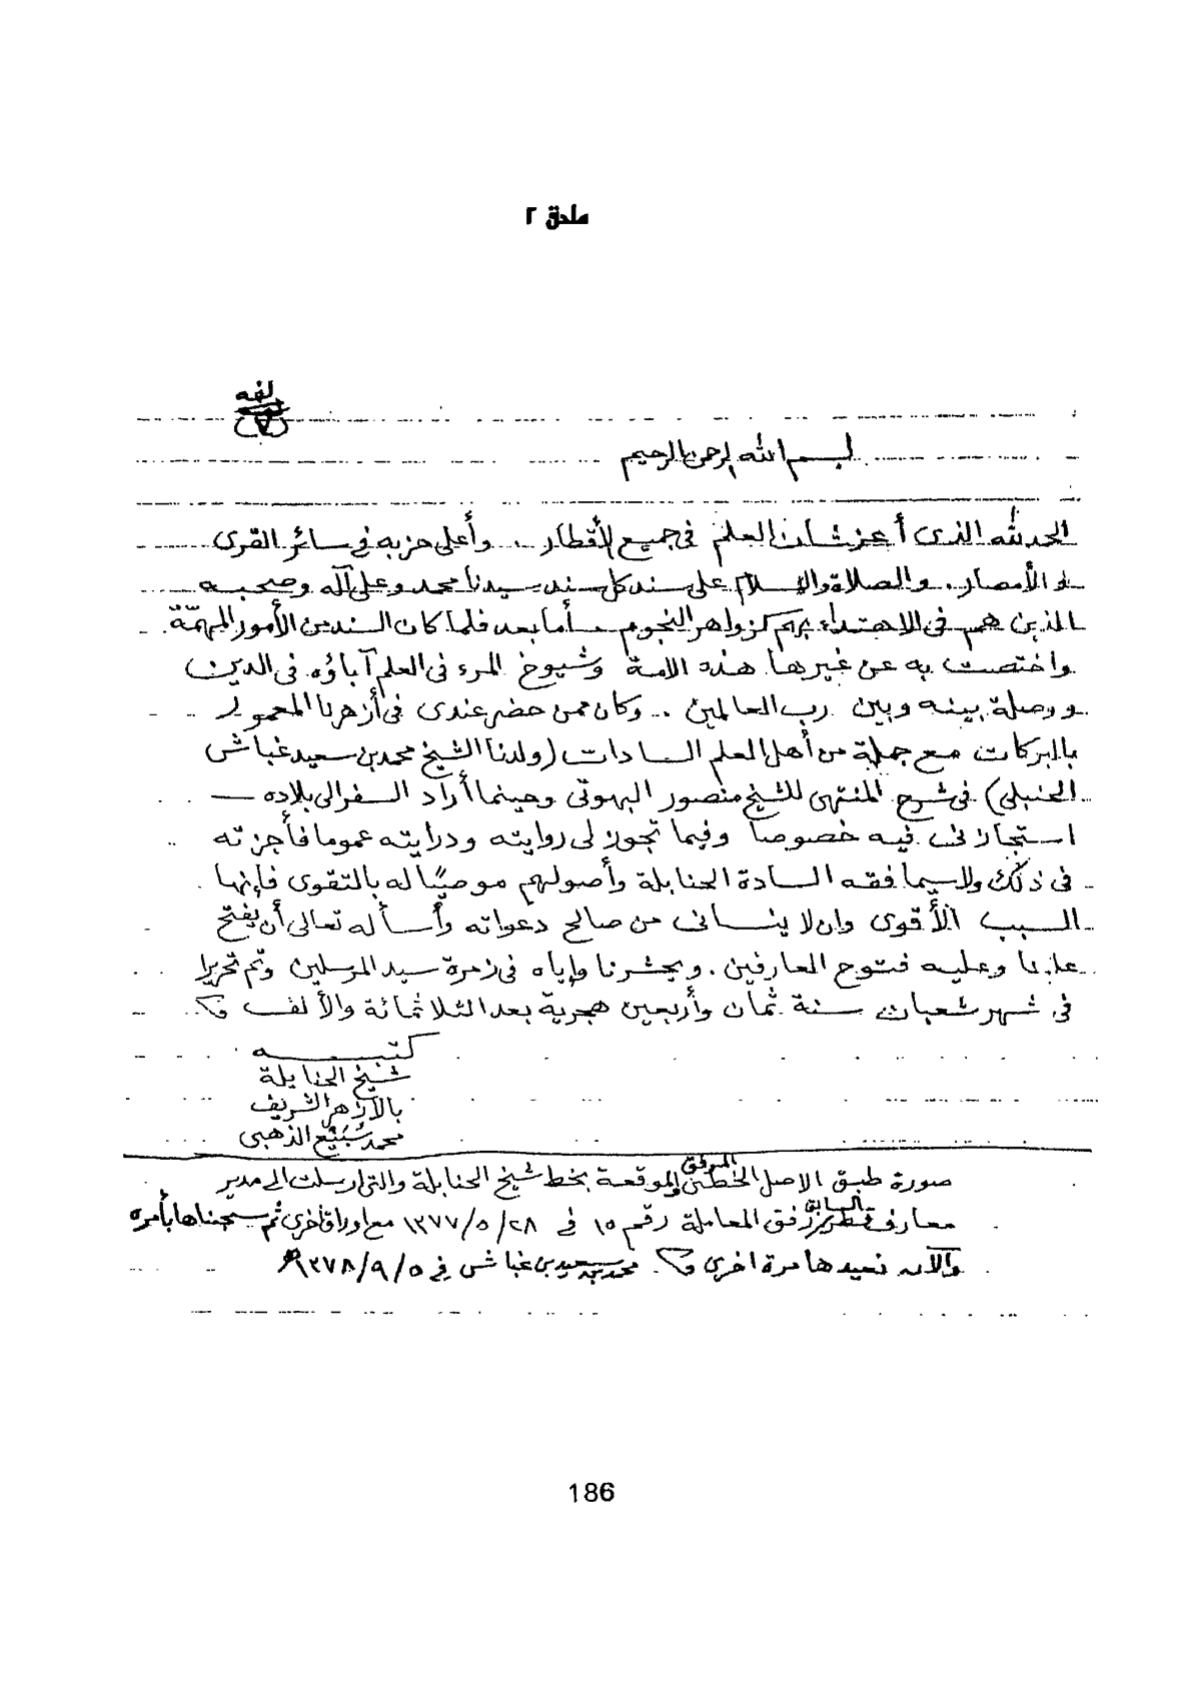 ملحق ٢
لفه
(٧)
بسم الله الرحمن الرحيم
الحمد لله الذى أعز شأن العلم فى جميع الأقطار . وأعلى حزبه فى سائر القرى
والأمصار . والصلاة والسلام على سند كل سند سيدنا محمد وعلى آله وصحبه
الذين هم فى الاهتداء بهم كزواهر النجوم . أما بعد فلما كان السند من الأمور المهمّة
واختصت به عن غيرها هذه الامة وشيوخ المرء فى العلم آباؤه فى الدين
ووصلة بينه وبين رب العالمين .. وكان ممن حضر عندى فى أزهرنا المعمور
بالبركات مع جملة من أهل العلم السادات (ولدنا الشيخ محمد بن سعيد غباش
الحنبلى) فى شرح المنتهى للشيخ منصور البهوتى وحينما أراد السفر الى بلاده
استجازنى فيه خصوصا وفيما تجوز لى روايته ودرايته عموما فأجزته
فى ذلك ولاسيما فقه السادة الحنابلة وأصولهم موصيًا له بالتقوى فإنها
السبب الأقوى وان لا ينسانى من صالح دعواته وأسأله تعالى أن يفتح
علينا وعليه فتوح العارفين . ويحشرنا وإياه فى زمرة سيد المرسلين وتم تحريرا
فى شهر شعبان سنة ثمان وأربعين هجرية بعد الثلاثمائة والألف
كتبه
شيخ الحنابلة
بالأزهر الشريف
محمد سُبَيْع الذهبى
صورة طبق الاصل الخطى الموقعة بخط شيخ الحنابلة والتى ارسلت الى مدير
معارف قطر السابق رفق المعاملة رقم ١٥ فى ٢٨/٥/١٣٧٧ مع اوراق أخرى ثم سحبناها بأمره
والآن نعيدها مرة اخرى محمد بن سعيد بن غباش فى ٥/٩/١٣٧٨
186